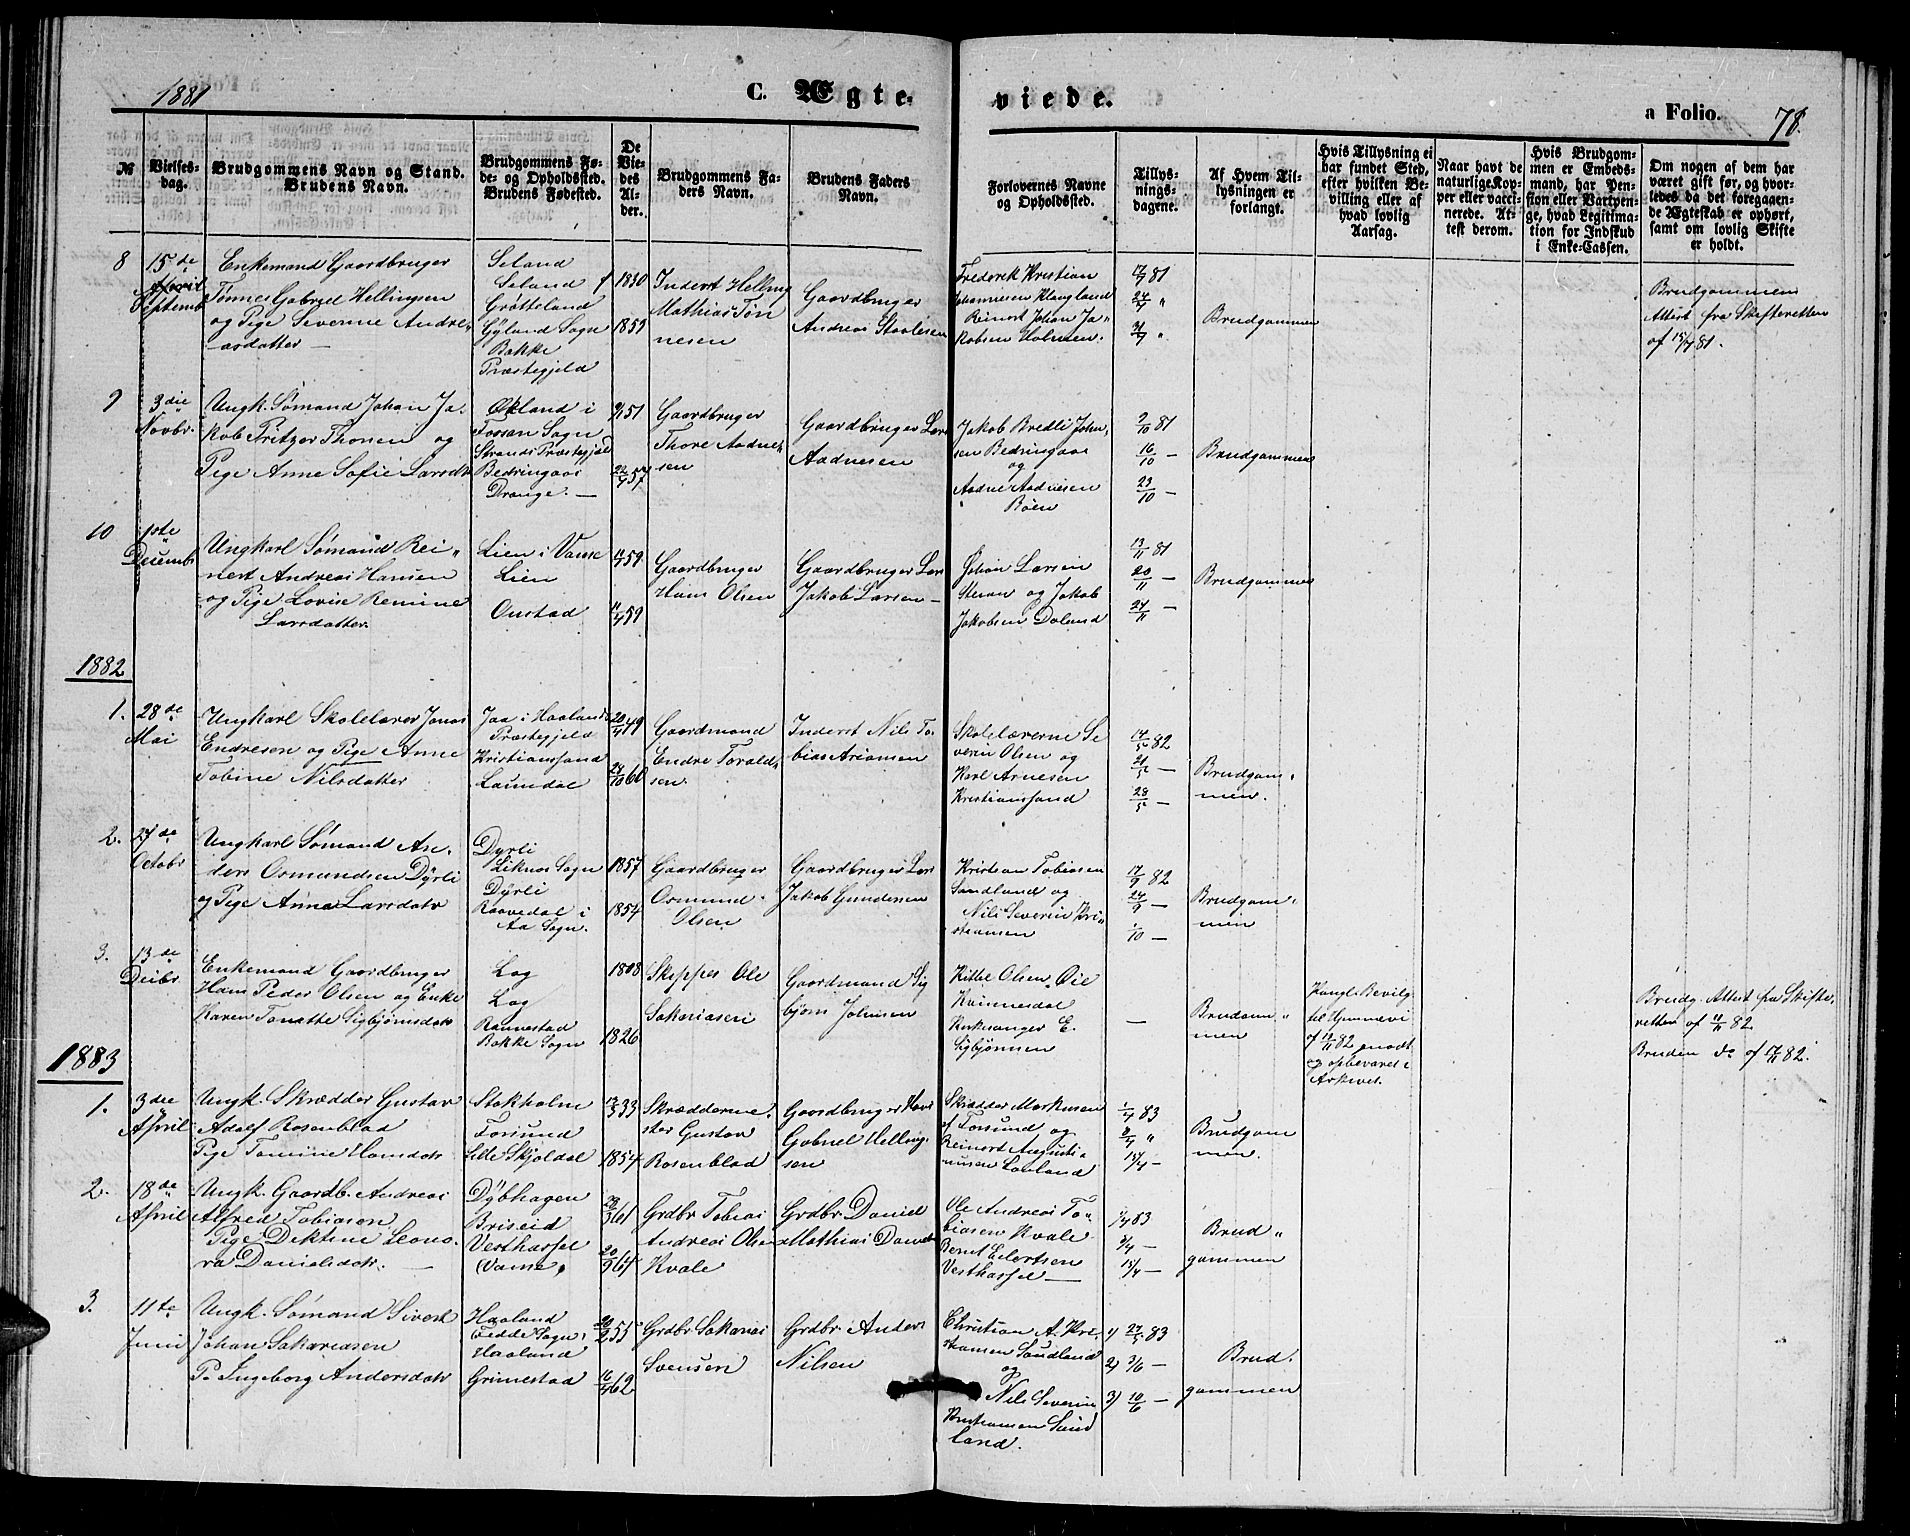 1881
C. Ægte-
viede.
a Folio.
78.
№
Vielses-
dag.
Brudgommens Navn og Stand.
Brudens Navn.
Brudgommens Fø-
de- og Opholdssted.
Brudens Fødested.
De
Vie-
des
Al-
der.
Brudgommens Fa-
ders Navn.
Brudens Faders
Navn.
Forlovernes Navne
og Opholdssted.
Tillys-
nings-
dagene.
Af Hvem Til-
lysningen er
forlangt.
Hvis Tillysning ei
har fundet Sted,
efter hvilken Be-
villing eller af
hvad lovlig
Aarsag.
Naar havt de
naturlige Kop-
per eller vacci-
nerede. At-
test derom.
Hvis Brudgom-
men er Embeds-
mand, har Pen-
sion eller Vartpen-
ge, hvad Legitima-
tion for Indskud
i Enke-Cassen.
Om nogen af dem har
været gift før, og hvor-
ledes da det foregaaen-
de Ægteskab er ophørt,
samt om lovlig Skifte
er holdt.
8
15de
Septemb
Enkemand Gaardbruger
Tønnes Gabriel Hellingsen
og Pige Severine Andre-
asdatter —
Seland
Seland
Grøtteland
Gyland Sogn
Bakke
Præstegjeld
1830
1859
Inderst Helling
Mathias Tøn
nesen
Gaardbruger
Andreas Staalesen
Frederik Kristian
Johannesen Klungland
Reinert Johan Ja-
kobsen Holmen.
17/7 81
24/7 "
31/7 "
Brudgommen
Brudgommen
Attest fra Skifteretten
of 15/7 81.
9
3die
Novbr.
Ungk. Sømand Johan Ja-
kob Fritzer Thorsen og
Pige Anne Sofie Larsdtr
Økland i
Fossan Sogn
Strands Præstegjeld
Bedringaas
Drange. —
51
22/4 57
Gaardbruger
Thore Aadne-
sen
Gaardbruger Lars
Aadnesen
Jakob Bredli John-
sen Bedringaas
og
Aadne Aadnesen
Bøen
9/10 81
16/10 —
23/10 —
Brudgommen
10
1ste
Decemb
Ungkarl Sømand Rei-
nert Andreas Hansen
og Pige Lovise Remine
Larsdatter.
Lien i Vanse
Lien
Onstad
59
11/4 59
Gaardbruger
Hans Olsen
Gaardbruger Lars
Jakob Larsen —
Johan Larsen
Steran og Jakob
Jakobsen Doland
13/11 81
20/11 —
27/11 —
Brudgommen
1882
1.
28de
Mai
Ungkarl Skolelærer Jonas
Endresen og Pige Anne
Tobine Nilsdatter
Jaa i Haalands
Præstegjeld
Kristianssand
Laundal
20/4 49
28/10 60
Gaardmand
Endre Torald-
sen.
Inderst Nils To-
bias Ariansen
Skolelærerne Se
verin Olsen og
Karl Arnesen
Kristianssand
14/5 82
21/5 —
28/5 —
Brudgom-
men.
2.
27de
Octobr
Ungkarl Sømand An-
ders Osmundsen Dyrli
og Pige Anna Larsdatr
Dyrli
Liknes Sogn
Dyrli
Raavedal i
Aa Sogn.
1857
1854
Gaardbruger
Osmund
Olsen
Gaardbruger Lars
Jakob Gundersen
Kristian Tobiasen
Sandland og
Nils Severin Kri-
stiansen
17/9 82
24/9 —
1/10 —
Brudgom-
men
3.
13de
Decbr
Enkemand Gaardbruger
Hans Peder Olsen og Enke
Karen Tonette Sigbjørnsdatr
Log
Log
Rannestad
Bakke Sogn
1808
1826
Skipper Ole
Sakariasen
Gaardmand Sig
bjørn Johnsen
Kittel Olsen Øie
Kvinnesdal
Kirkesanger E.
Sigbjørnsen
—
Brudgom-
men
Kongl. Bevilg
til Hjemmevi
of 17/11 82 forevist
og opbevaret i
Arkivet.
Brudg. Attest fra Skifte-
retten of 11/11 82
Bruden do of 17/11 82.
1883
1.
3die
April
Ungk. Skrædder Gustav
Adolf Rosenblad
Pige Tomine Hansdatr
Stokholm
Farsund
Lille Skjoldal
12/5 33
1854
Skræddermes-
ster Gustav
Rosenblad
Gaardbruger Hans
Gabriel Helling-
sen
Skrædder Markusen
af Farsund og
Reinert Augusti-
nussen Lauland
1/4 83
8/4 "
15/4 —
Brudgom
men.
2.
18de
April
Ungk. Gaardb. Andreas
Alfred Tobiasen
Pige Dektine Leono-
ra Danielsdatr. —
Dybhagen
Briseid
Vesthassel
(Vanse)
29/3 61
20/9 64
Grdbr Tobias
Andreas Olsen
Kvale
Grdbr. Daniel
Mathias Daniels
Ole Andreas To-
biasen Kvale
Bernt Eilertsen
Vesthassel —
1/4 83
8/4 —
15/4 —
Brud-
gommen
3.
11te
Juni
Ungk. Sømand Sivert
Johan Sakariasen
P. Ingeborg Andersdatr
Haaland
Fedde Sogn.
Haaland
Grimestad
20/2 55
16/4 62
Grdbr Sakarias
Svensen
Grdbr. Anders
Nilsen
Christian A. Kri-
stiansen Sandland
og
Nils Severin
Kristiansen Sand
land.
1) 27/5 83
2) 3/6 —
3) 10/6 —
Brud-
gommen